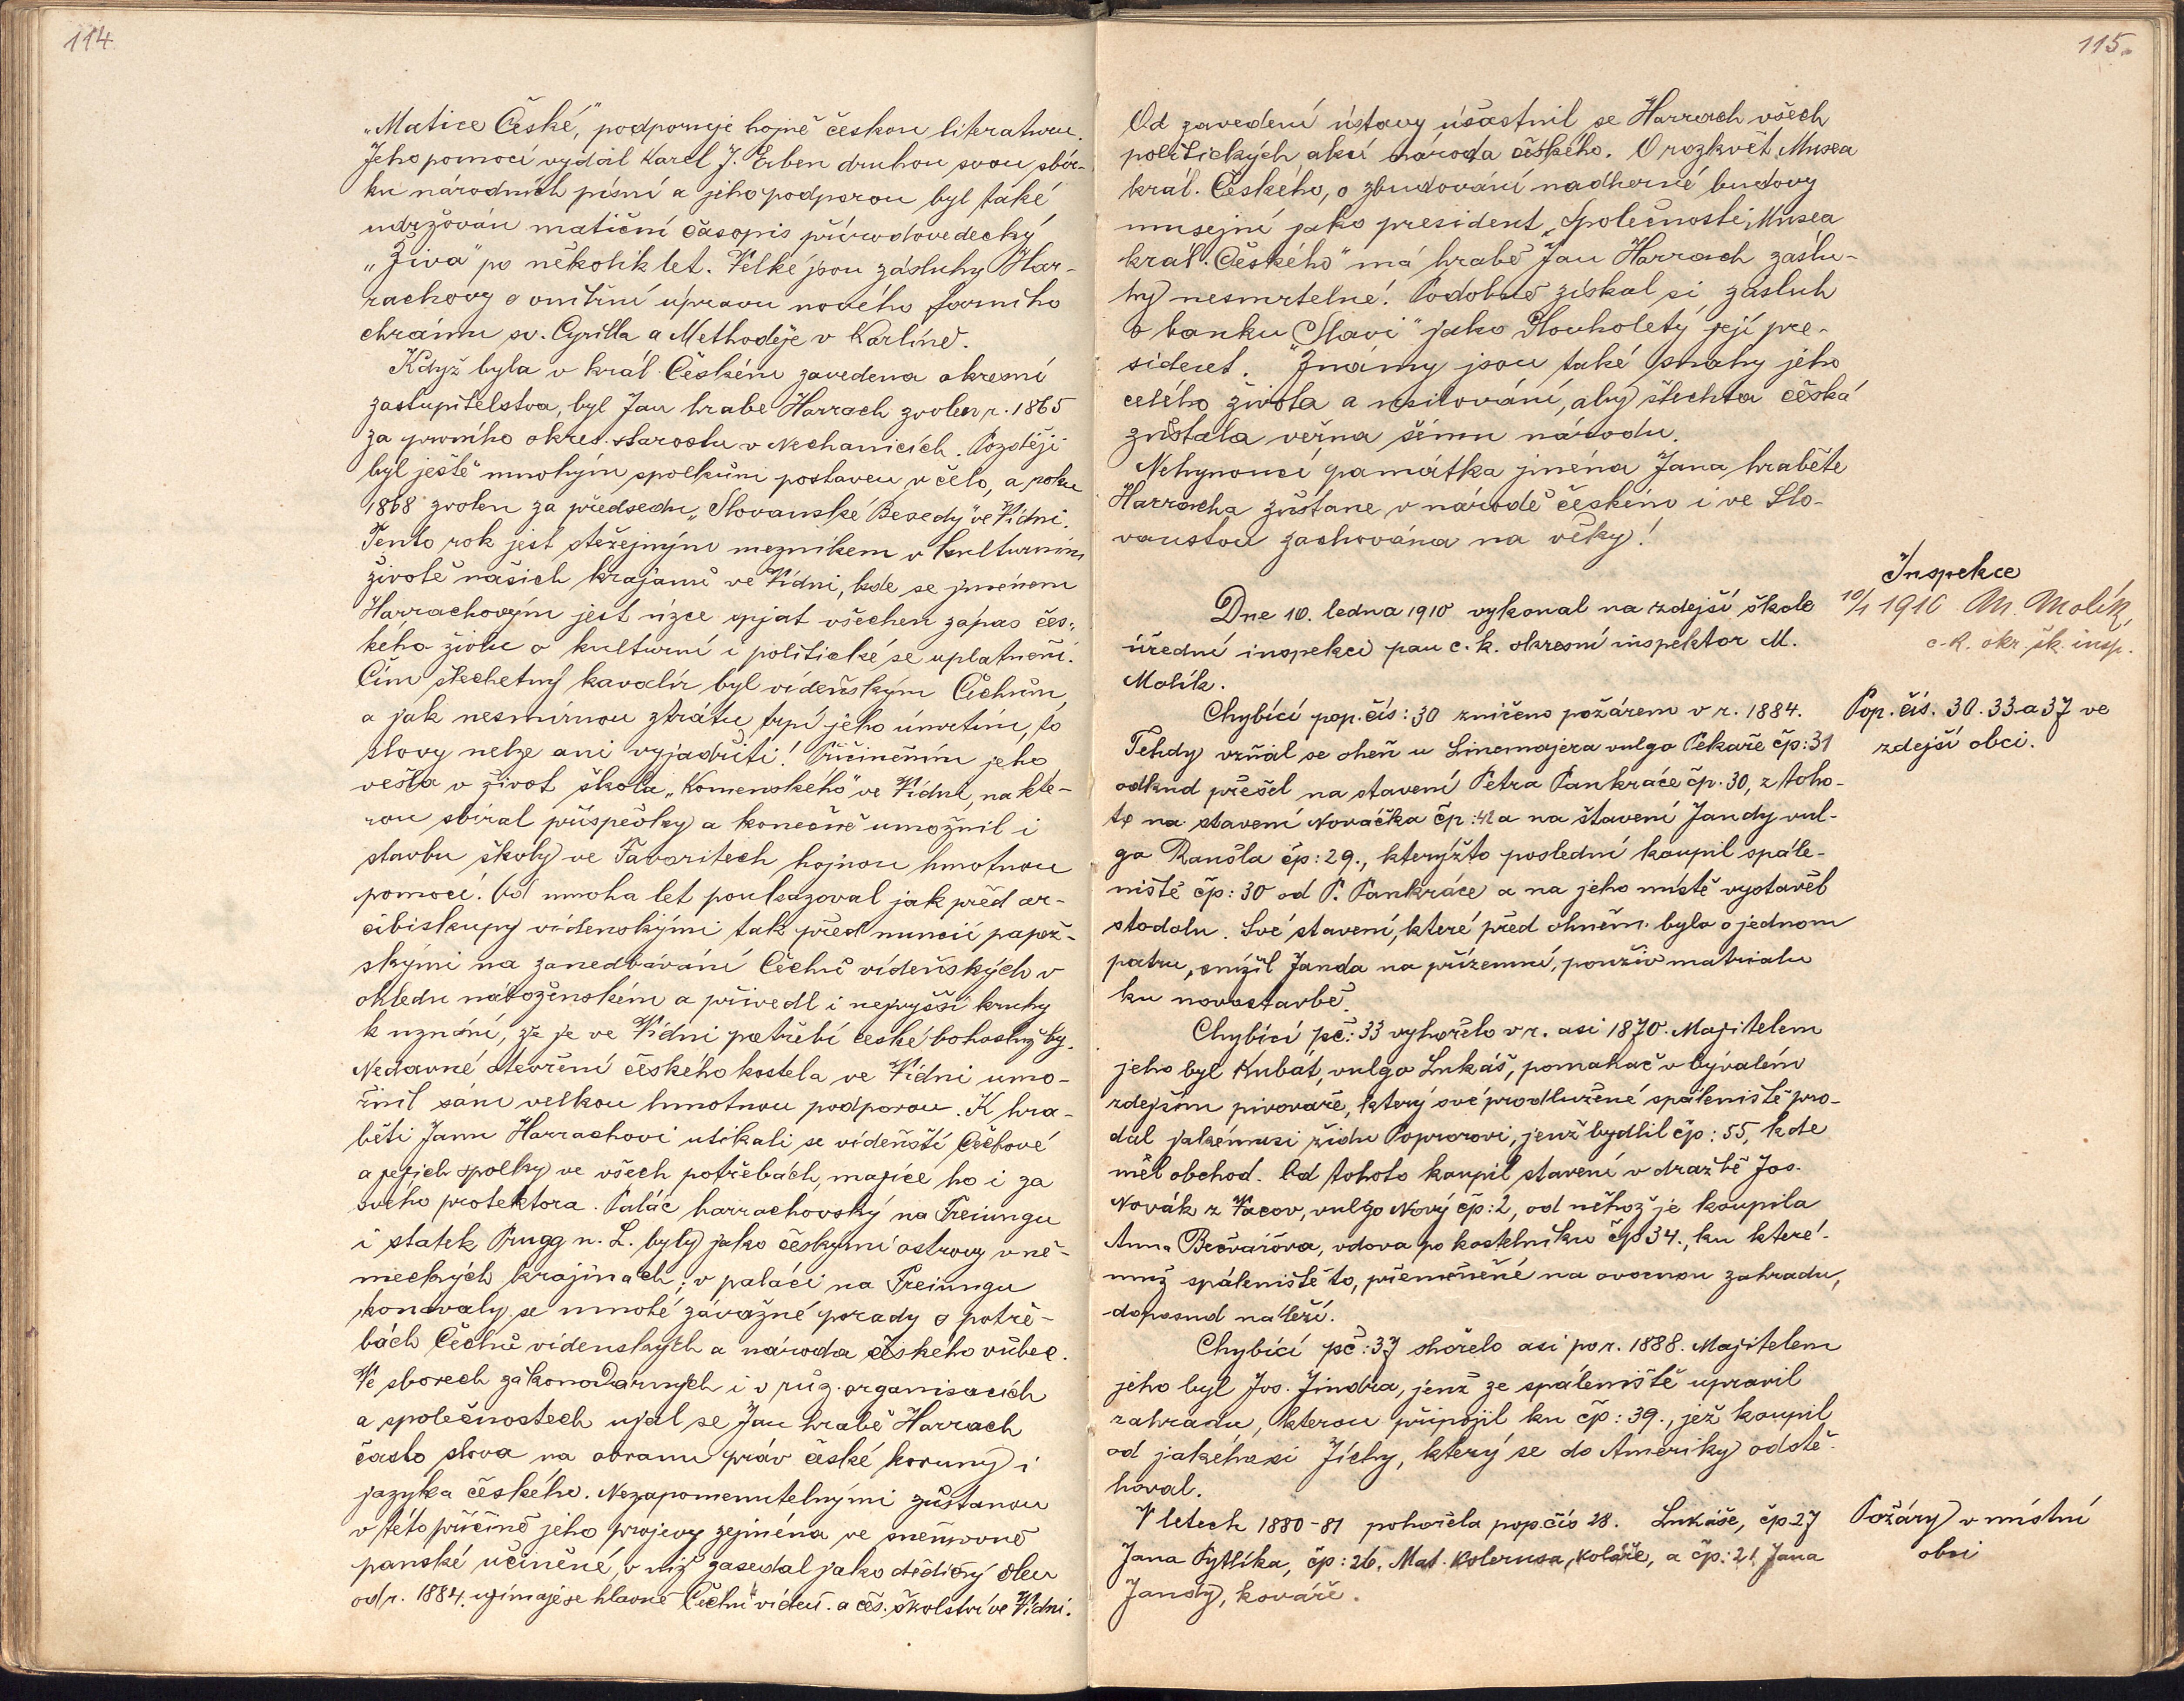 114.
„Matice České,“ podporuje hojně českou literaturu.
Jeho pomocí vydal Karel J. Erben druhou svou sbír-
ku národních písní a jeho podporou byl také
udržován matiční časopis přírodovedecký
„Živa“ po několik let. Velké jsou zásluhy Har-
rachovy o vnitřní úpravu nového farního
chrámu sv. Cyrilla a Methoděje v Karlíně.
Když byla v král. Českém zavedena okresní
zastupitelstva, byl Jan hrabe Harrach zvolen r. 1865
za prvního okres. starostu v Nechanicích. Později
byl ještě mnohým spolkům postaven v čelo, a roku
1868 zvolen za předsedu „Slovanské Besedy“ ve Vídni.
Tento rok jest stežejným mezníkem v kulturním
životě našich krajanů ve Vídni, kde se jménem
Harrachovým jest úzce spjat všechen zápas čes-
kého živlu o kulturní i politické se uplatnění.
Čím šlechetný kavalír byl vídeňským Čechům,
a jak nesmírnou ztrátu trpí jeho úmrtím, to
slovy nelze ani vyjadřiti! Přičiněním jeho
vešla v život škola „Komenského“ ve Vídni, na kte-
rou sbíral příspěvky a konečně umožnil i
stavbu školy ve Favoritech hojnou hmotnou
pomocí. Od mnoha let poukazoval jak před ar-
cibiskupy vídenskými tak před nuncii papež-
skými na zanedbávání Čechů vídeňských v
ohledu náboženském a přivedl i nejvyšší kruhy
k uznání, že je ve Vídni potřebí české bohoslužby.
Nedavné otevření českého kostela ve Vídni umo-
žnil sám velkou hmotnou podporou. K hra-
běti Janu Harrachovi utíkali se vídeňští Čechové
a jejich spolky ve všech potřebách, majíce ho i za
svého protektora. Palác harrachovský na Freiungu
i statek Prugg n. L. byly jako českými ostrovy v ně-
meckých krajinách; v paláci na Freiungu
konávaly se mnohé závažné porady o potře-
bách Čechů vídenských a národa českého vůbec.
Ve sborech zákonodarných i v růz. organisacích
a společnostech ujal se Jan hrabě Harrach
často slova na obranu práv české koruny i
jazyka českého. Nezapomenutelnými zůstanou
v této příčině jeho projevy zejména ve sněmovně
panské učiněné, v níž zasedal jako dědičný člen
od r. 1884. ujímaje se hlavně Čechů vídeň. a čes. školství ve Vídni.
115.
Od zavedení ústavy účastnil se Harrach všech
politických akcí národa českého. O rozkvět Musea
král. Českého, o zbudování nadherné budovy
musejní jako president „Společnosti Musea
král. Českého“ má hrabě Jan Harrach zaslu-
hy nesmrtelné! Podobně získal si zásluh
o banku „Slavii“ jako dlouholetý její pre-
sident. Známy jsou také snahy jeho
celého života a usilování, aby šlechta česká
zůstala verna svému národu.
Nehynoucí památka jména Jana hraběte
Harracha zůstane v národě českém i ve Slo-
vanstvu zachována na věky!
Inspekce
10/1 1910 M. Molík,
c. k. okr. šk. insp.
Dne 10. ledna 1910 vykonal na zdejší škole
úřední inspekci pan c. k. okresní inspektor M.
Molík.
Pop. čís. 30. 33 a 37 ve
zdejší obci.
Chybící pop. čís: 30 zničeno požárem v r. 1884.
Tehdy vzňal se oheň u Linemajera vulgo Pekaře čp: 31
odkud přešel na stavení Petra Pankráce čp. 30, z toho-
to na stavení Nováčka čp: 42 a na stavení Jandy vul-
go Rančla čp: 29., kterýžto poslední koupil spále-
niště čp: 30 od P. Pankráce a na jeho místě vystavěl
stodolu. Své stavení, které před ohněm bylo o jednom
patru, snížil Janda na přízemní, použiv matrialu
ku novostavbě.
Chybící pč: 33 vyhořelo v r. asi 1870. Majitelem
jeho byl Kubát, vulgo Lukáš, pomahač v bývalém
zdejším pivovaře, který své prodlužené spáleniště pro-
dal jakémusi židu Poprorovi, jenž bydlil čp: 55, kde
měl obchod. Od tohoto koupil stavení v dražbě Jos.
Novák z Vacov, vulgo Nový čp: 2, od něhož je koupila
Anna Bečvářova, vdova po kostelníku čp 34., ku které-
muž spáleniště to, přeměněné na ovocnou zahradu,
doposud náleží.
Chybící pč: 37 shořelo asi po r. 1888. Majitelem
jeho byl Jos. Jindra, jenž ze spáleniště upravil
zahradu, kterou připojil ku čp: 39., jež koupil
od jakéhosi Jíchy, který se do Ameriky odstě-
hoval.
Požáry v místní
obci
V letech 1880-81 pohořela pop. čís 28. Lukáše, čp 27
Jana Pytlíka, čp: 26. Mat. Kolerusa, koláře, a čp: 21 Jana
Jandy, kováře.